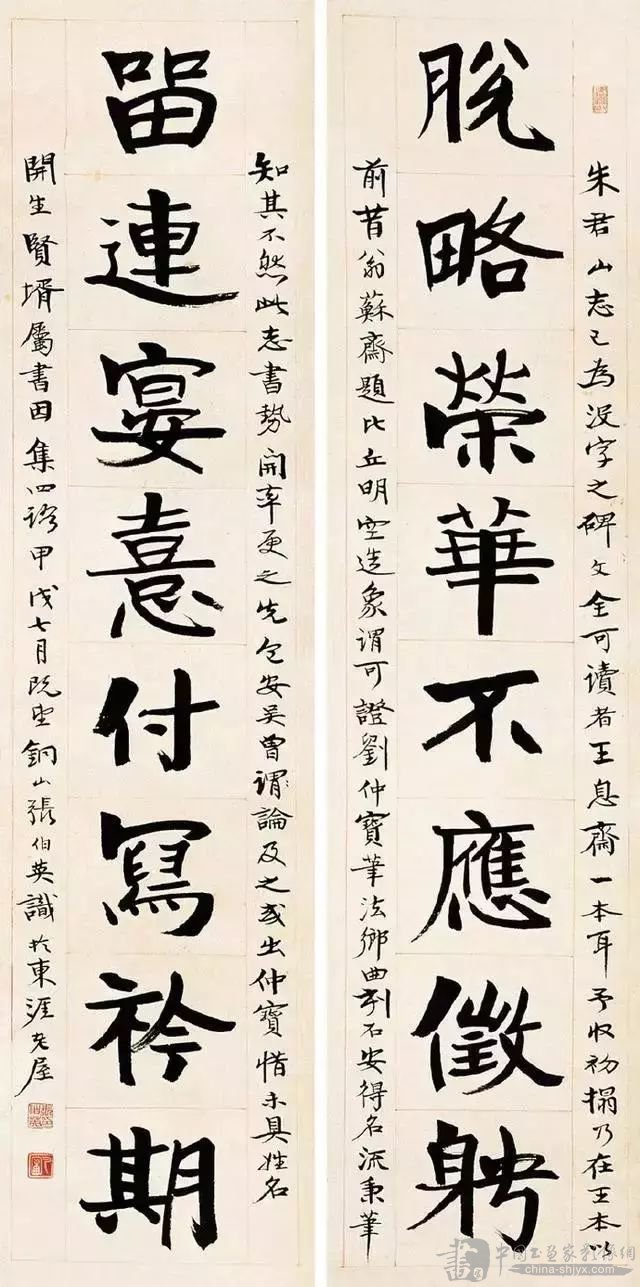 朱君山志已為沒字之碑文全可讀者王息齋一本耳予收初搨乃在王本以
脫略榮華不應徵聘
前昔翁蘇齋題比丘明空造象謂可證劉仲寶筆法鄉曲刻石安得名流秉筆
知其不然此志書勢開率更之先包安吴曾謂論及之或出仲寶惜未具姓名
留連宴憙付寫衿期
開生賢壻屬書因集四語甲戌七月既望銅山張伯英識於東涯老屋
china-shjyx.com